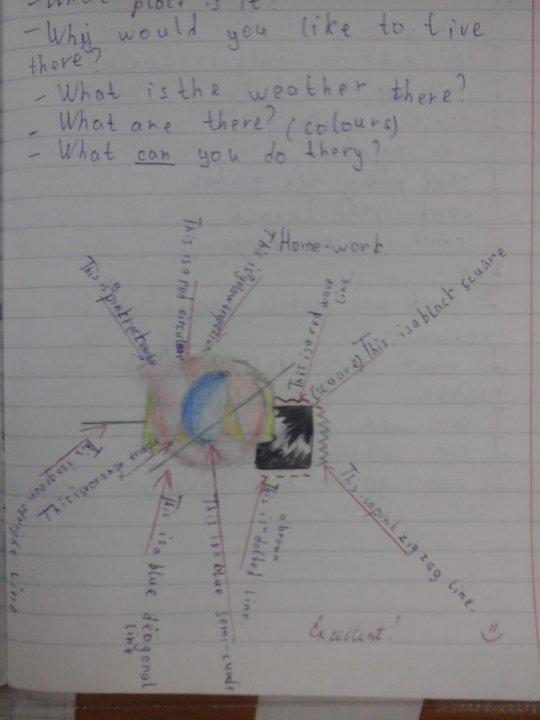 - What place is it?
- Why would you like to live
there?
- What is the weather there?
- What are there? (colours)
- What can you do thery?
Home-work.
This is a red circular
This is a red wave
line.
(scuare) This is a black square
This is pink zigzag line.
a brown
This is dotted line.
This is a blue semi-
This is a blue diagonal
line
This is orange
This is green
line
This is pink
This is
Excellent!